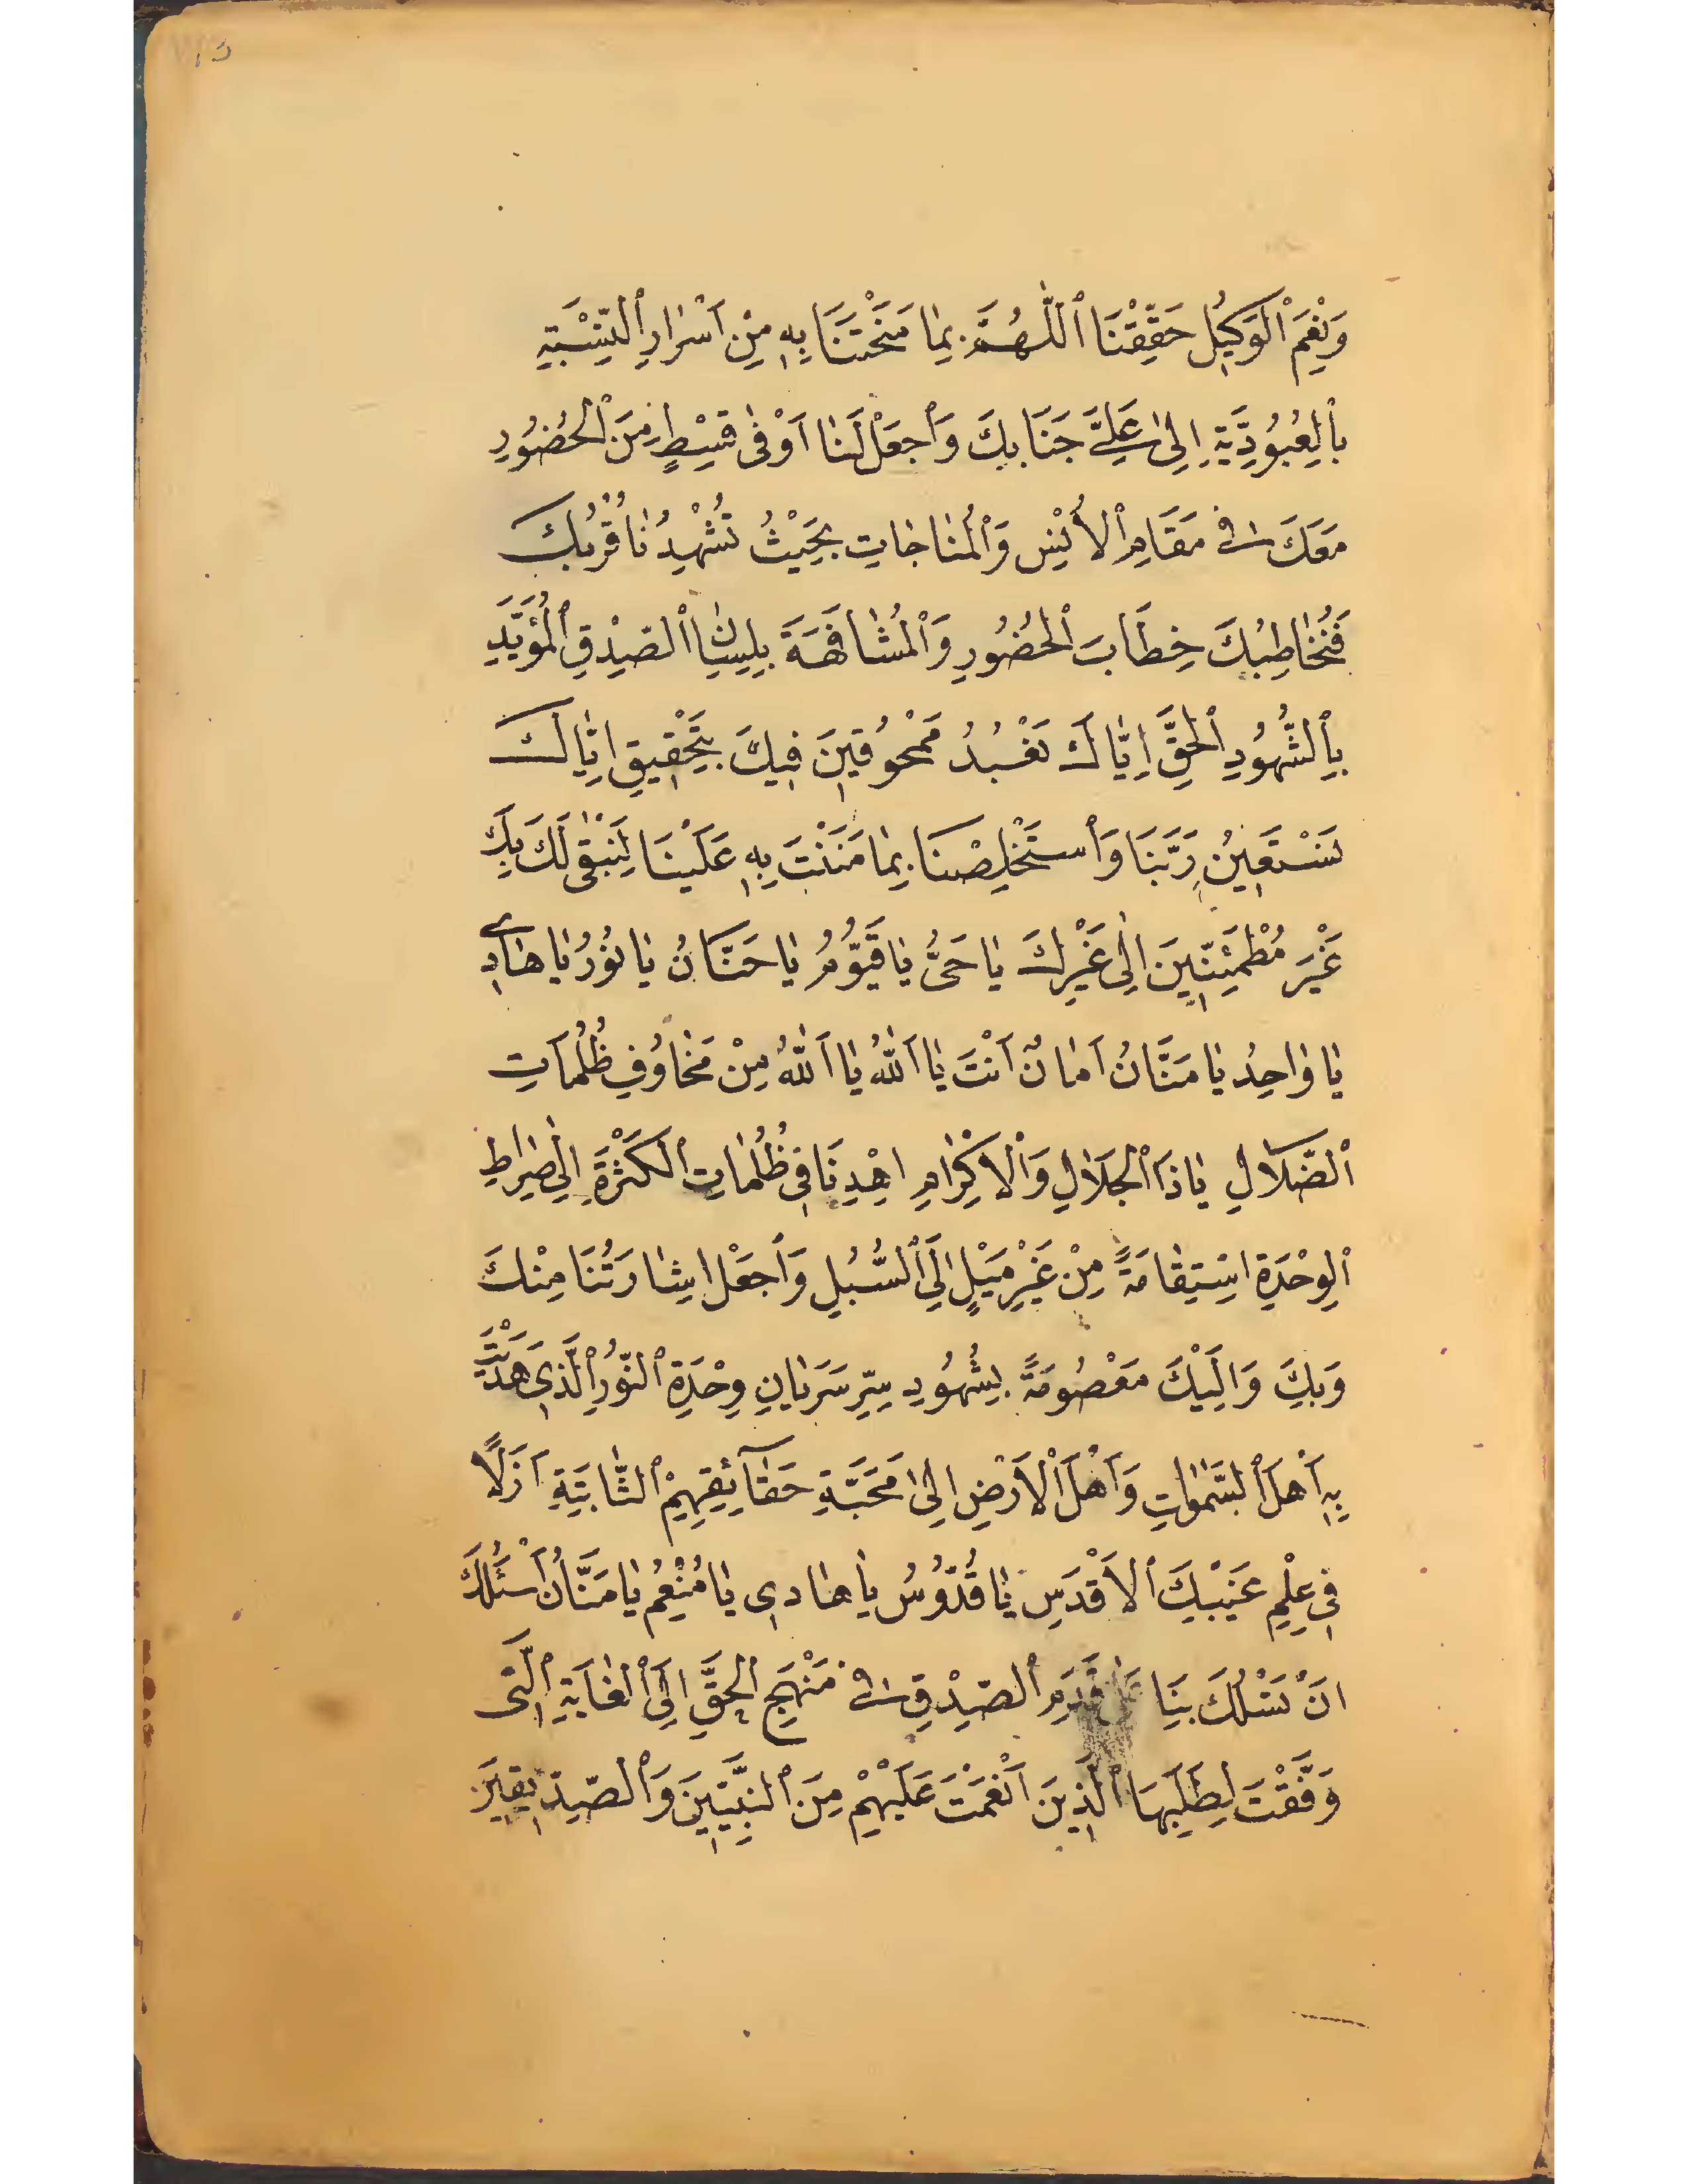 وَنِعْمَ ٱلْوَكِيلُ حَقِّقْنَا ٱللّٰهُمَّ بِمَا مَنَحْتَنَا بِهِ مِنْ اَسْرَارِ ٱلنِّسْبَةِ
بِٱلْعُبُودِيَّةِ اِلىٰ عَلِيِّ جَنَابِكَ وَٱجْعَلْ لَنَا اَوْفىٰ قِسْطٍ مِنَ ٱلْحُضُورِ
مَعَكَ فِي مَقَامِ ٱلْأُنْسِ وَٱلْمُنَاجَاتِ بِحَيْثُ تُشْهِدُنَا قُرْبَكَ
فَنُخَاطِبُكَ خِطَابَ ٱلْحُضُورِ وَٱلْمُشَافَهَةَ بِلِسَانِ ٱلصِّدْقِ ٱلْمُؤَيَّدِ
بِٱلشُّهُودِ ٱلْحَقِّ اِيَّاكَ نَعْبُدُ مَمْحُوقِينَ فِيكَ بِتَحْقِيقِ اِيَّاكَ
نَسْتَعِينُ رَبَّنَا وَٱسْتَخْلِصْنَا بِمَا مَنَنْتَ بِهِ عَلَيْنَا لِنَبْقىٰ لَكَ بِكَ
غَيْرَ مُطْمَئِنِّينَ اِلىٰ غَيْرِكَ يَا حَىُّ يَا قَيُّومُ يَا حَنَّانُ يَا نُورُ يَا هَادِي
يَا وَاحِدُ يَا مَنَّانُ اَمَانٌ اَنْتَ يَا اَللّٰهُ يَا اَللّٰهُ مِنْ مَخَاوُفِ ظُلُمَاتِ
ٱلضَّلَالِ يَا ذَا ٱلْجَلَالِ وَٱلْاِكْرَامِ اِهْدِنَا فِي ظُلُمَاتِ ٱلْكَثْرَةِ اِلىٰ صِرَاطِ
ٱلْوِحْدَةِ اِسْتِقَامَةً مِنْ غَيْرِ مَيْلٍ اِلَى ٱلسُّبُلِ وَٱجْعَلْ اِشَارَتُنَا مِنْكَ
وَبِكَ وَاِلَيْكَ مَعْصُومَةً بِشُهُودِ سِرِّ سَرَيَانِ وِحْدَةِ ٱلنُّورِ ٱلَّذِي هَدَيْتَ
بِهِ اَهْلَ ٱلسَّمٰوَاتِ وَاَهْلَ ٱلْاَرْضِ اِلىٰ مَحَبَّةِ حَقَآئِقِهِمْ ٱلثَّابِتَةِ اَزَلًا
فِي عِلْمِ غَيْبِكَ ٱلْاَقْدَسِ يَا قُدُّوسُ يَا هَادِي يَا مُنْعِمُ يَا مَنَّانُ اَسْئَلُكَ
اَنْ تَسْلُكَ بِنَا عَلىٰ قَدَمِ ٱلصِّدْقِ فِي مَنْهَجِ ٱلْحَقِّ اِلَى ٱلْغَايَةِ ٱلَّتِى
وَفَّقْتَ لِطَلَبِهَا ٱلَّذِينَ اَنْعَمْتَ عَلَيْهِمْ مِنَ ٱلنَّبِيِّينَ وَٱلصِّدِّيقِينَ